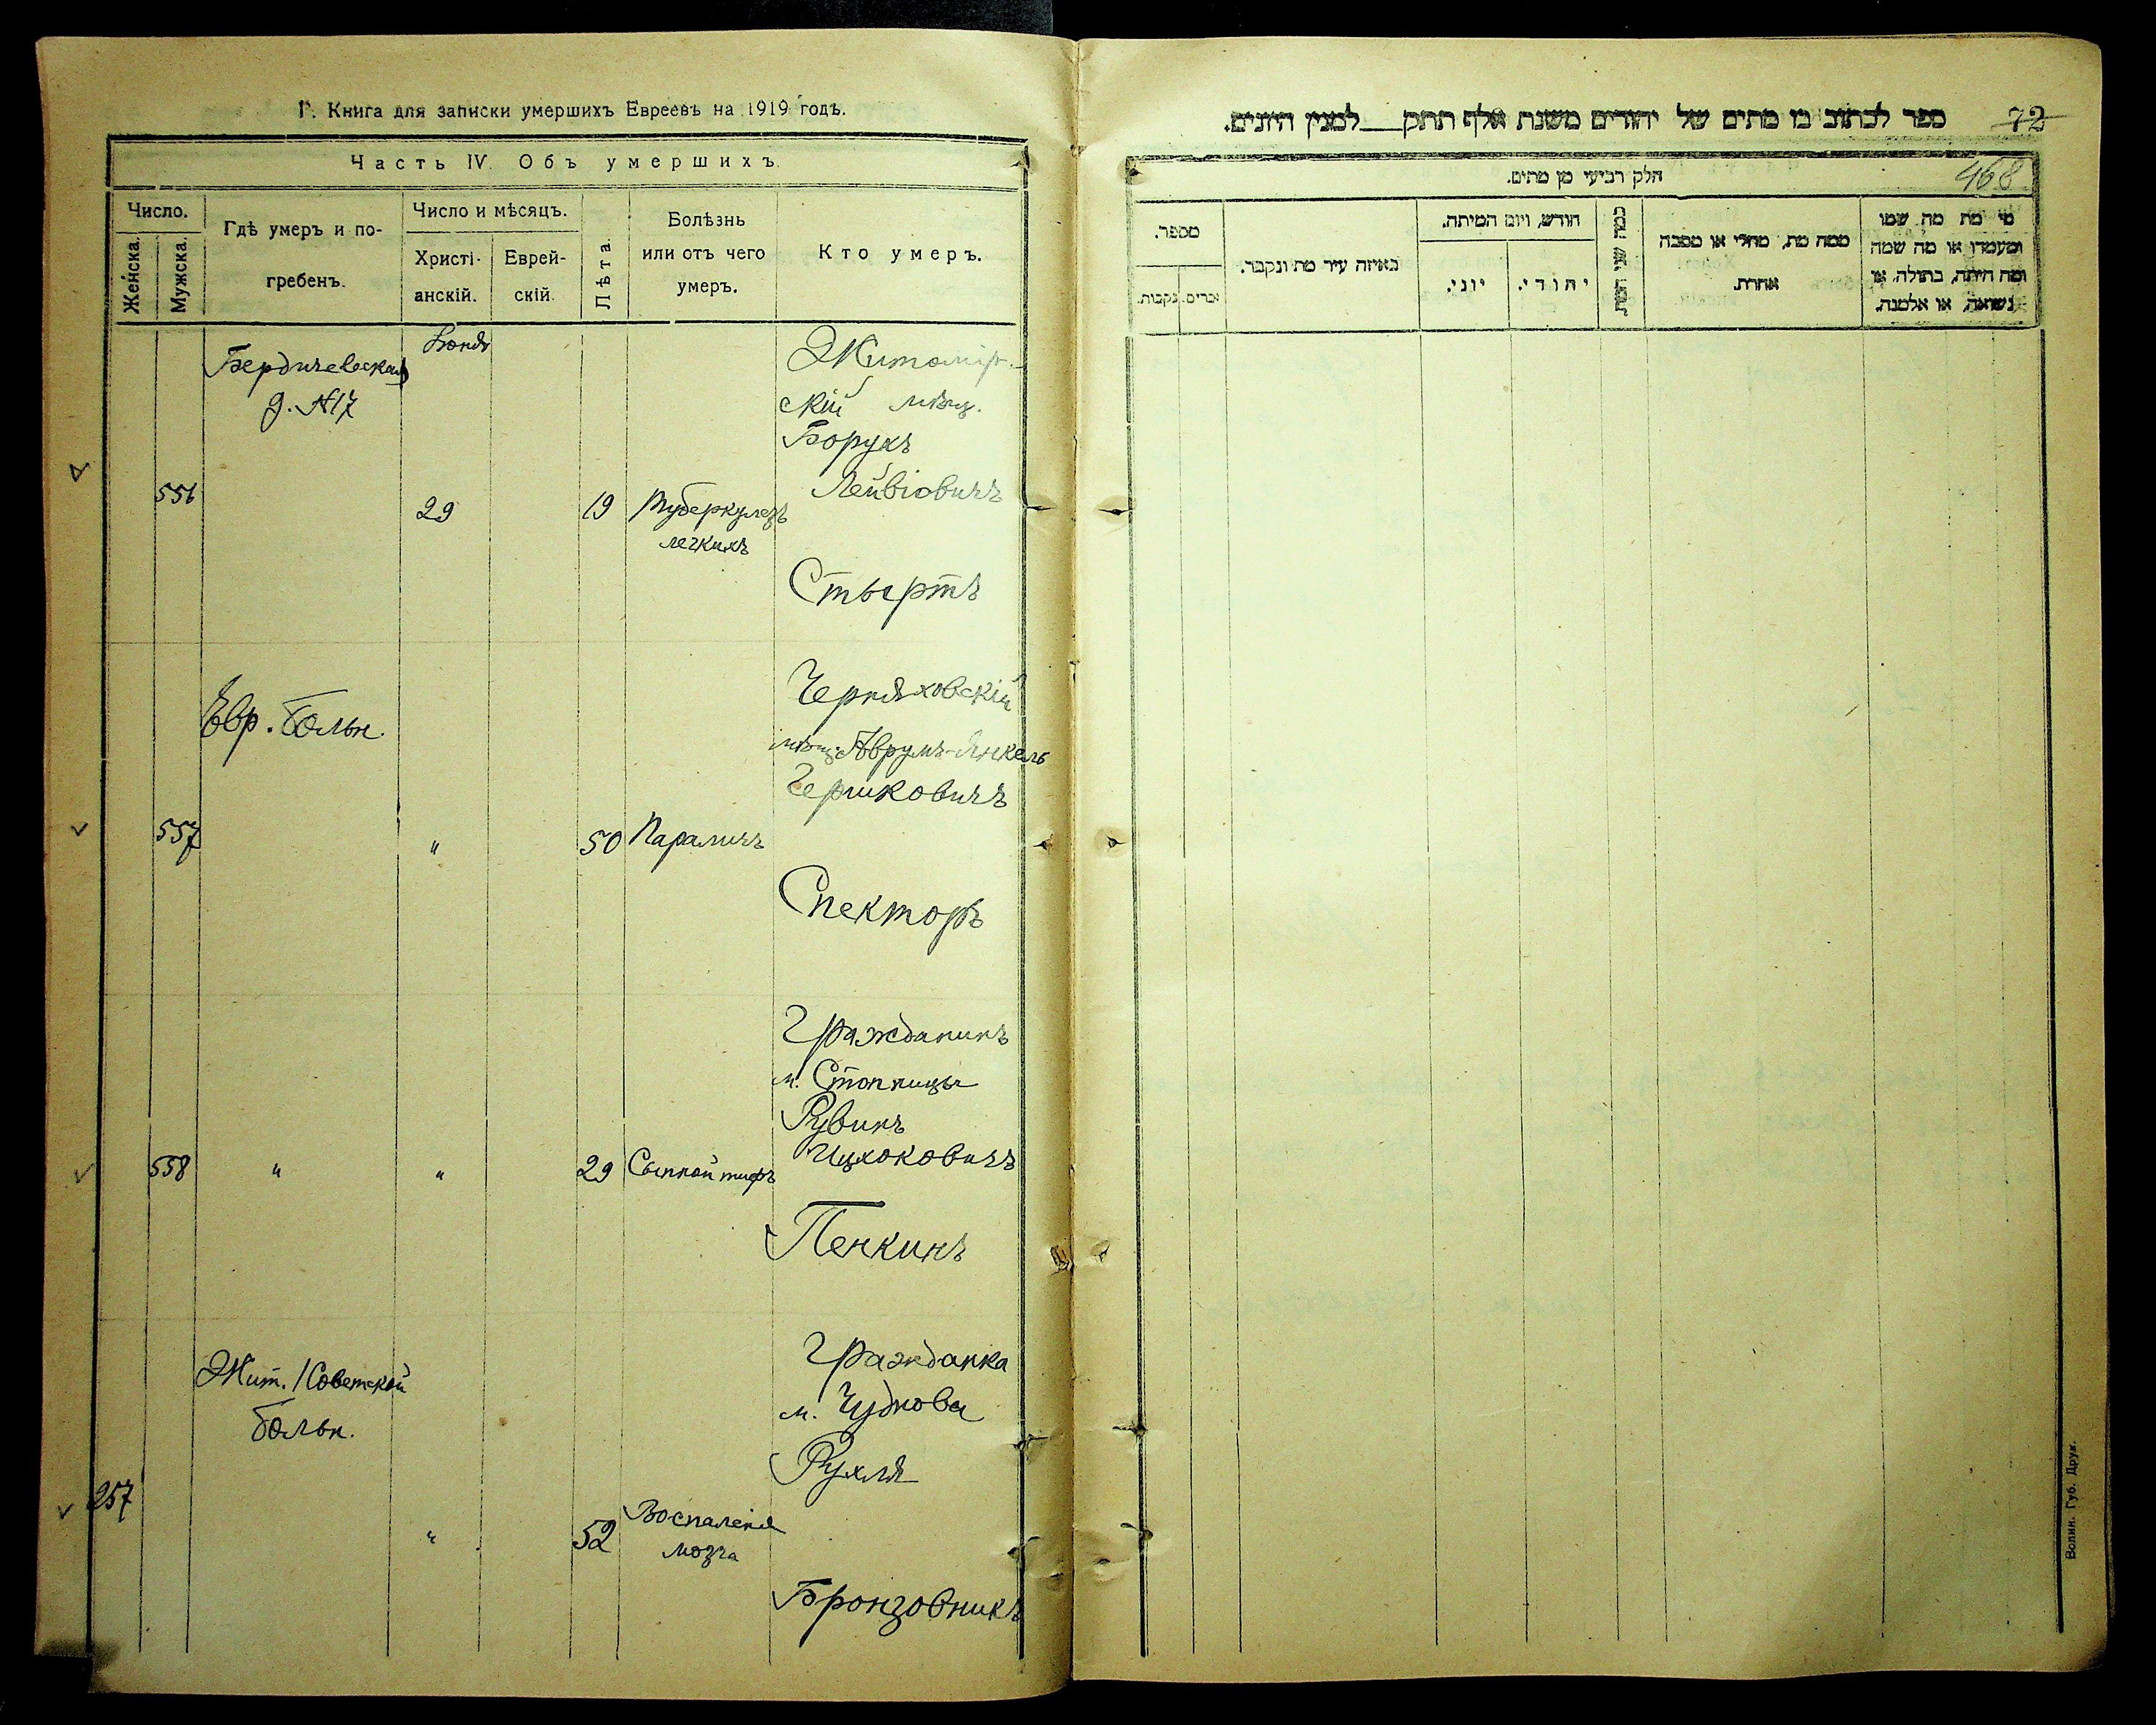 Г. Книга для записки умершихъ Евреевъ на 1919 годъ.
Часть IV. Объ умершихъ.
Число.
Женска.
Мужска.
Гдѣ умеръ и по-
гребенъ.
Число и мѣсяцъ.
Христі-
анскій.
Еврей-
скій.
Лѣта.
Болѣзнь
или отъ чего
умеръ.
Кто умеръ.
Бердичевская
д. №17
556
29
19
Туберкулезъ
легкихъ
Житомір-
скій мѣщ.
Борухъ
Лейвіовичъ
Стыртъ
Евр. больн.
557
"
50
Параличъ
Черняховскій
мѣщ. Аврумъ-Янкель
Гершковичъ
Спекторъ
558
"
"
29
Сыпной тифъ
Гражданинъ
м. Стопницы
Рувинъ
Ицхоковичъ
Пенкинъ
Жит. Советской
больн.
257
"
52
Воспаленія
мозга
Гражданка
м. Чуднова
Рухля
Бронзовникъ
ספר לכתוב בו מתים של יהודים משנת אלף תתק___למנין היונים.
72
468
חלק רביעי מן מתים.
מספר.
נקבות.
זכרים.
באיזה עיר מת ונקבר.
חודש, ויום המיתה.
יוני.
יהודי.
כמה שני המת
ממה מת, מחלי או מסבה
אחרת.
מי מת מה שמו
ומעמדו או מה שמה
ומה היתה, בתולה, או
נשואה, או אלמנה.
Волин. Губ. Друк.